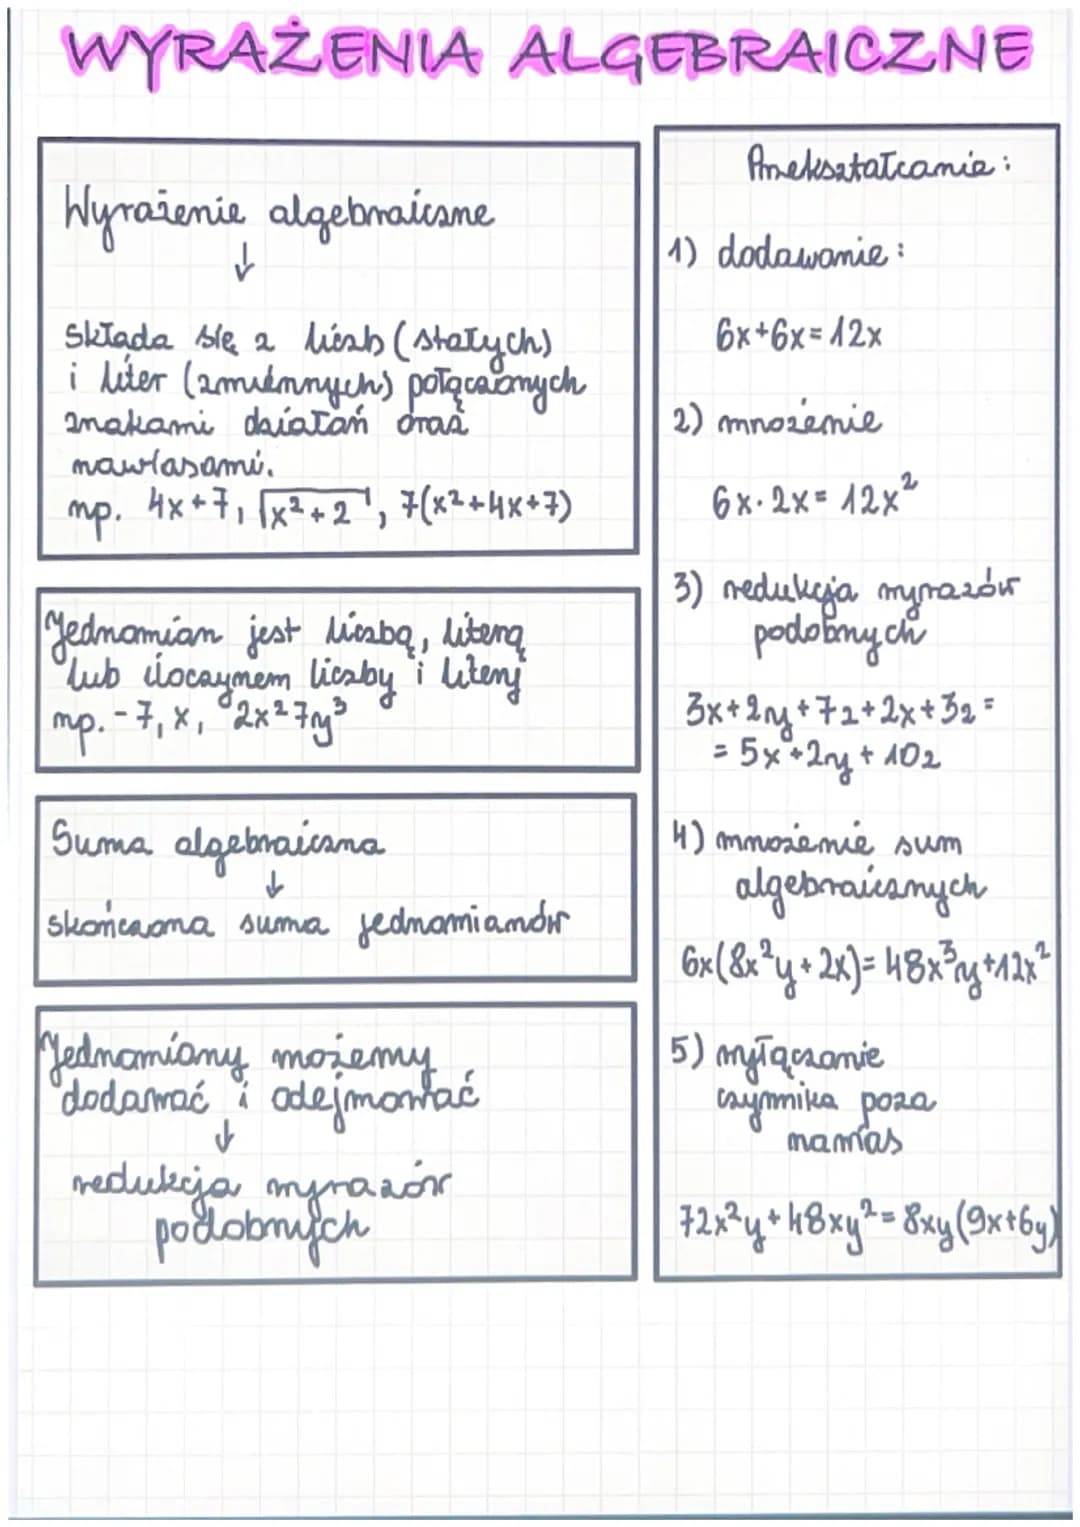 WYRAŻENIA ALGEBRAICZNE
Wyrażenie algebraiczne
↓
składa się z liczb (stałych)
i liter (zmiennych) połączonych
znakami działań oraz
nawiasami.
np. 4x+7, √x²+2, 7(x²+4x+7)
Jednomian jest liczbą, literą
lub iloczynem liczby i litery
np. -7, x, 2x²7y³
Suma algebraiczna
↓
skończona suma jednomianów
Jednomiany możemy
dodawać i odejmować
↓
redukcja wyrazów
podobnych
Przekształcanie:
1) dodawanie:
6x+6x=12x
2) mnożenie
6x·2x=12x²
3) redukcja wyrazów
podobnych
3x+2y+7z+2x+3z=
=5x+2y+10z
4) mnożenie sum
algebraicznych
6x(8x²y+2x)=48x³y+12x²
5) wyłączanie
czynnika poza
nawias
72x²y+48xy²=8xy(9x+6y)